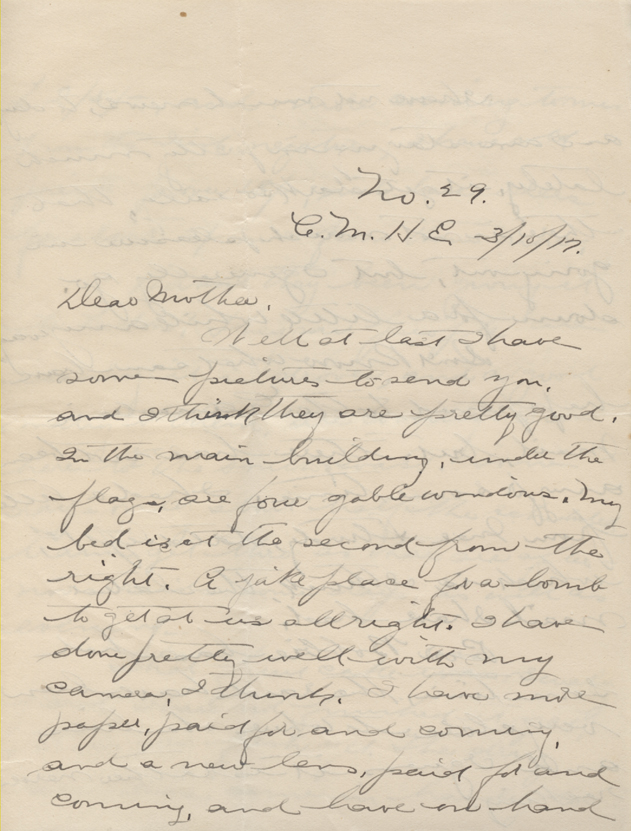 No. 29.
C. M. H. E. 3/10/17.
Dear Mother,
Well at last I have
some pictures to send you,
and I think they are pretty good.
In the main building, under the
flags, are four gable windows. My
bed is at the second from the
right. A jake place for a bomb
to get at us allright. I have
done pretty well with my
camera, I think. I have more
paper, paid for and coming,
and a new lens, paid for and
coming, and have on hand